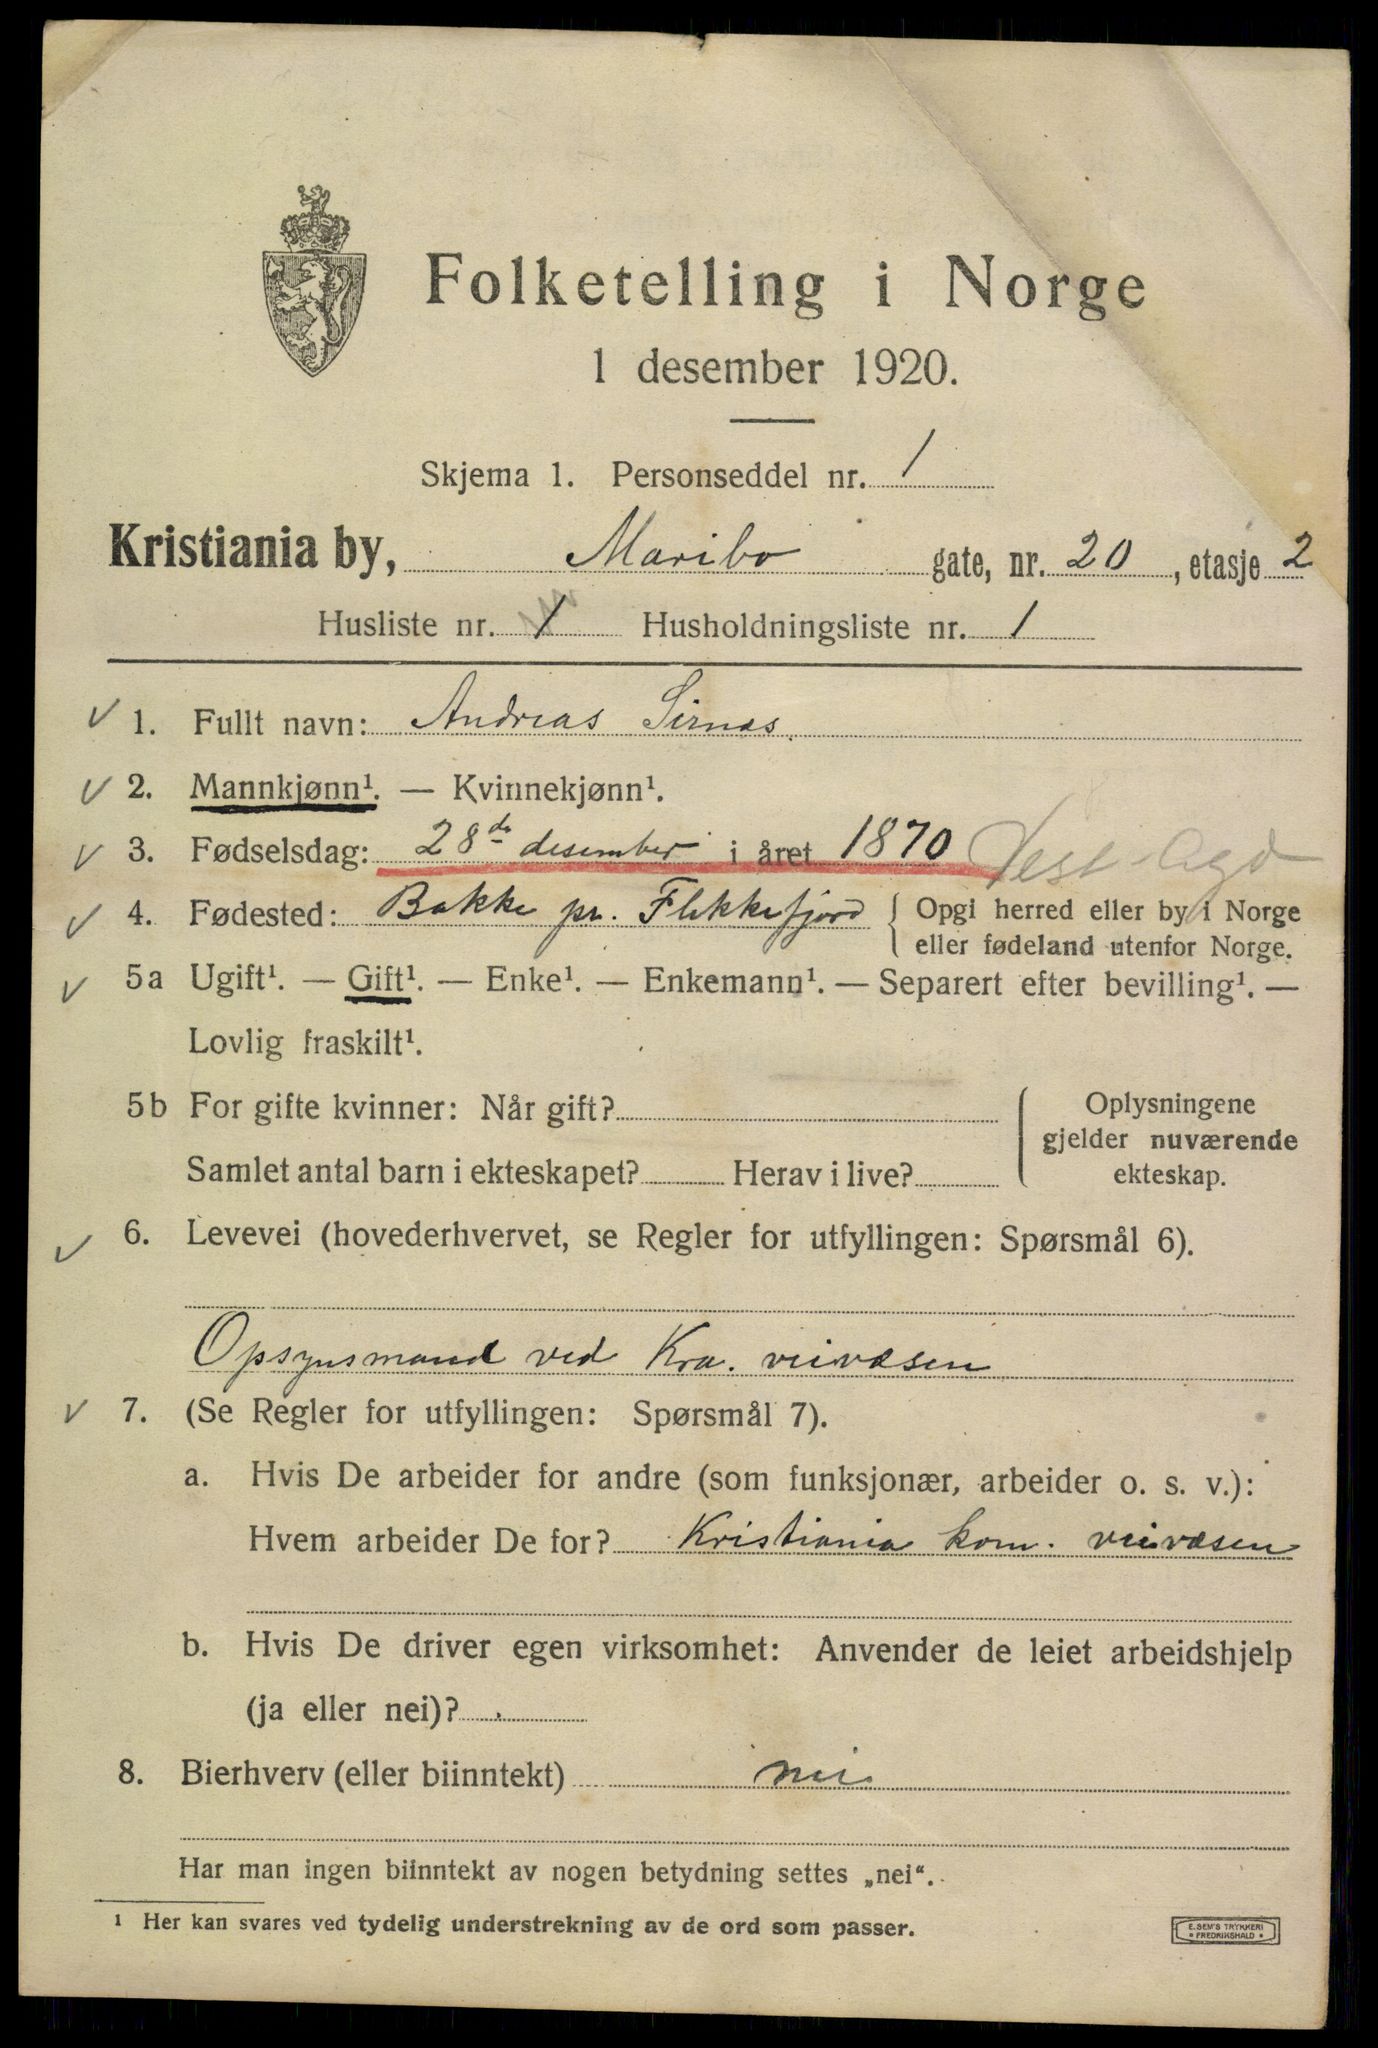 Folketelling i Norge
1 desember 1920.
Skjema 1. Personseddel nr. 1
Kristiania by, Maribo gate, nr. 20, etasje 2
Husliste nr. 1 Husholdningsliste nr. 1
1. Fullt navn: Andreas Sirnes
2. Mannkjønn¹. — Kvinnekjønn¹.
3. Fødselsdag: 28de desember i året 1870 Vest-Agd
4. Fødested: Bakke pr. Flekkefjord { Opgi herred eller by i Norge
eller fødeland utenfor Norge.
5a Ugift¹. — Gift¹. — Enke¹. — Enkemann¹. — Separert efter bevilling¹. —
Lovlig fraskilt¹.
5b For gifte kvinner: Når gift?
Samlet antal barn i ekteskapet? Herav i live?
Oplysningene
gjelder nuværende
ekteskap.
6. Levevei (hovederhvervet, se Regler for utfyllingen: Spørsmål 6).
Opsynsmand ved Kra. veivæsen
7. (Se Regler for utfyllingen: Spørsmål 7).
a. Hvis De arbeider for andre (som funksjonær, arbeider o. s. v.):
Hvem arbeider De for? Kristiania kom. veivæsen
b. Hvis De driver egen virksomhet: Anvender de leiet arbeidshjelp
(ja eller nei)?
8. Bierhverv (eller biinntekt) nei
Har man ingen biinntekt av nogen betydning settes „nei“.
¹ Her kan svares ved tydelig understrekning av de ord som passer.
E. SEM'S TRYKKERI
• FREDRIKSHALD •